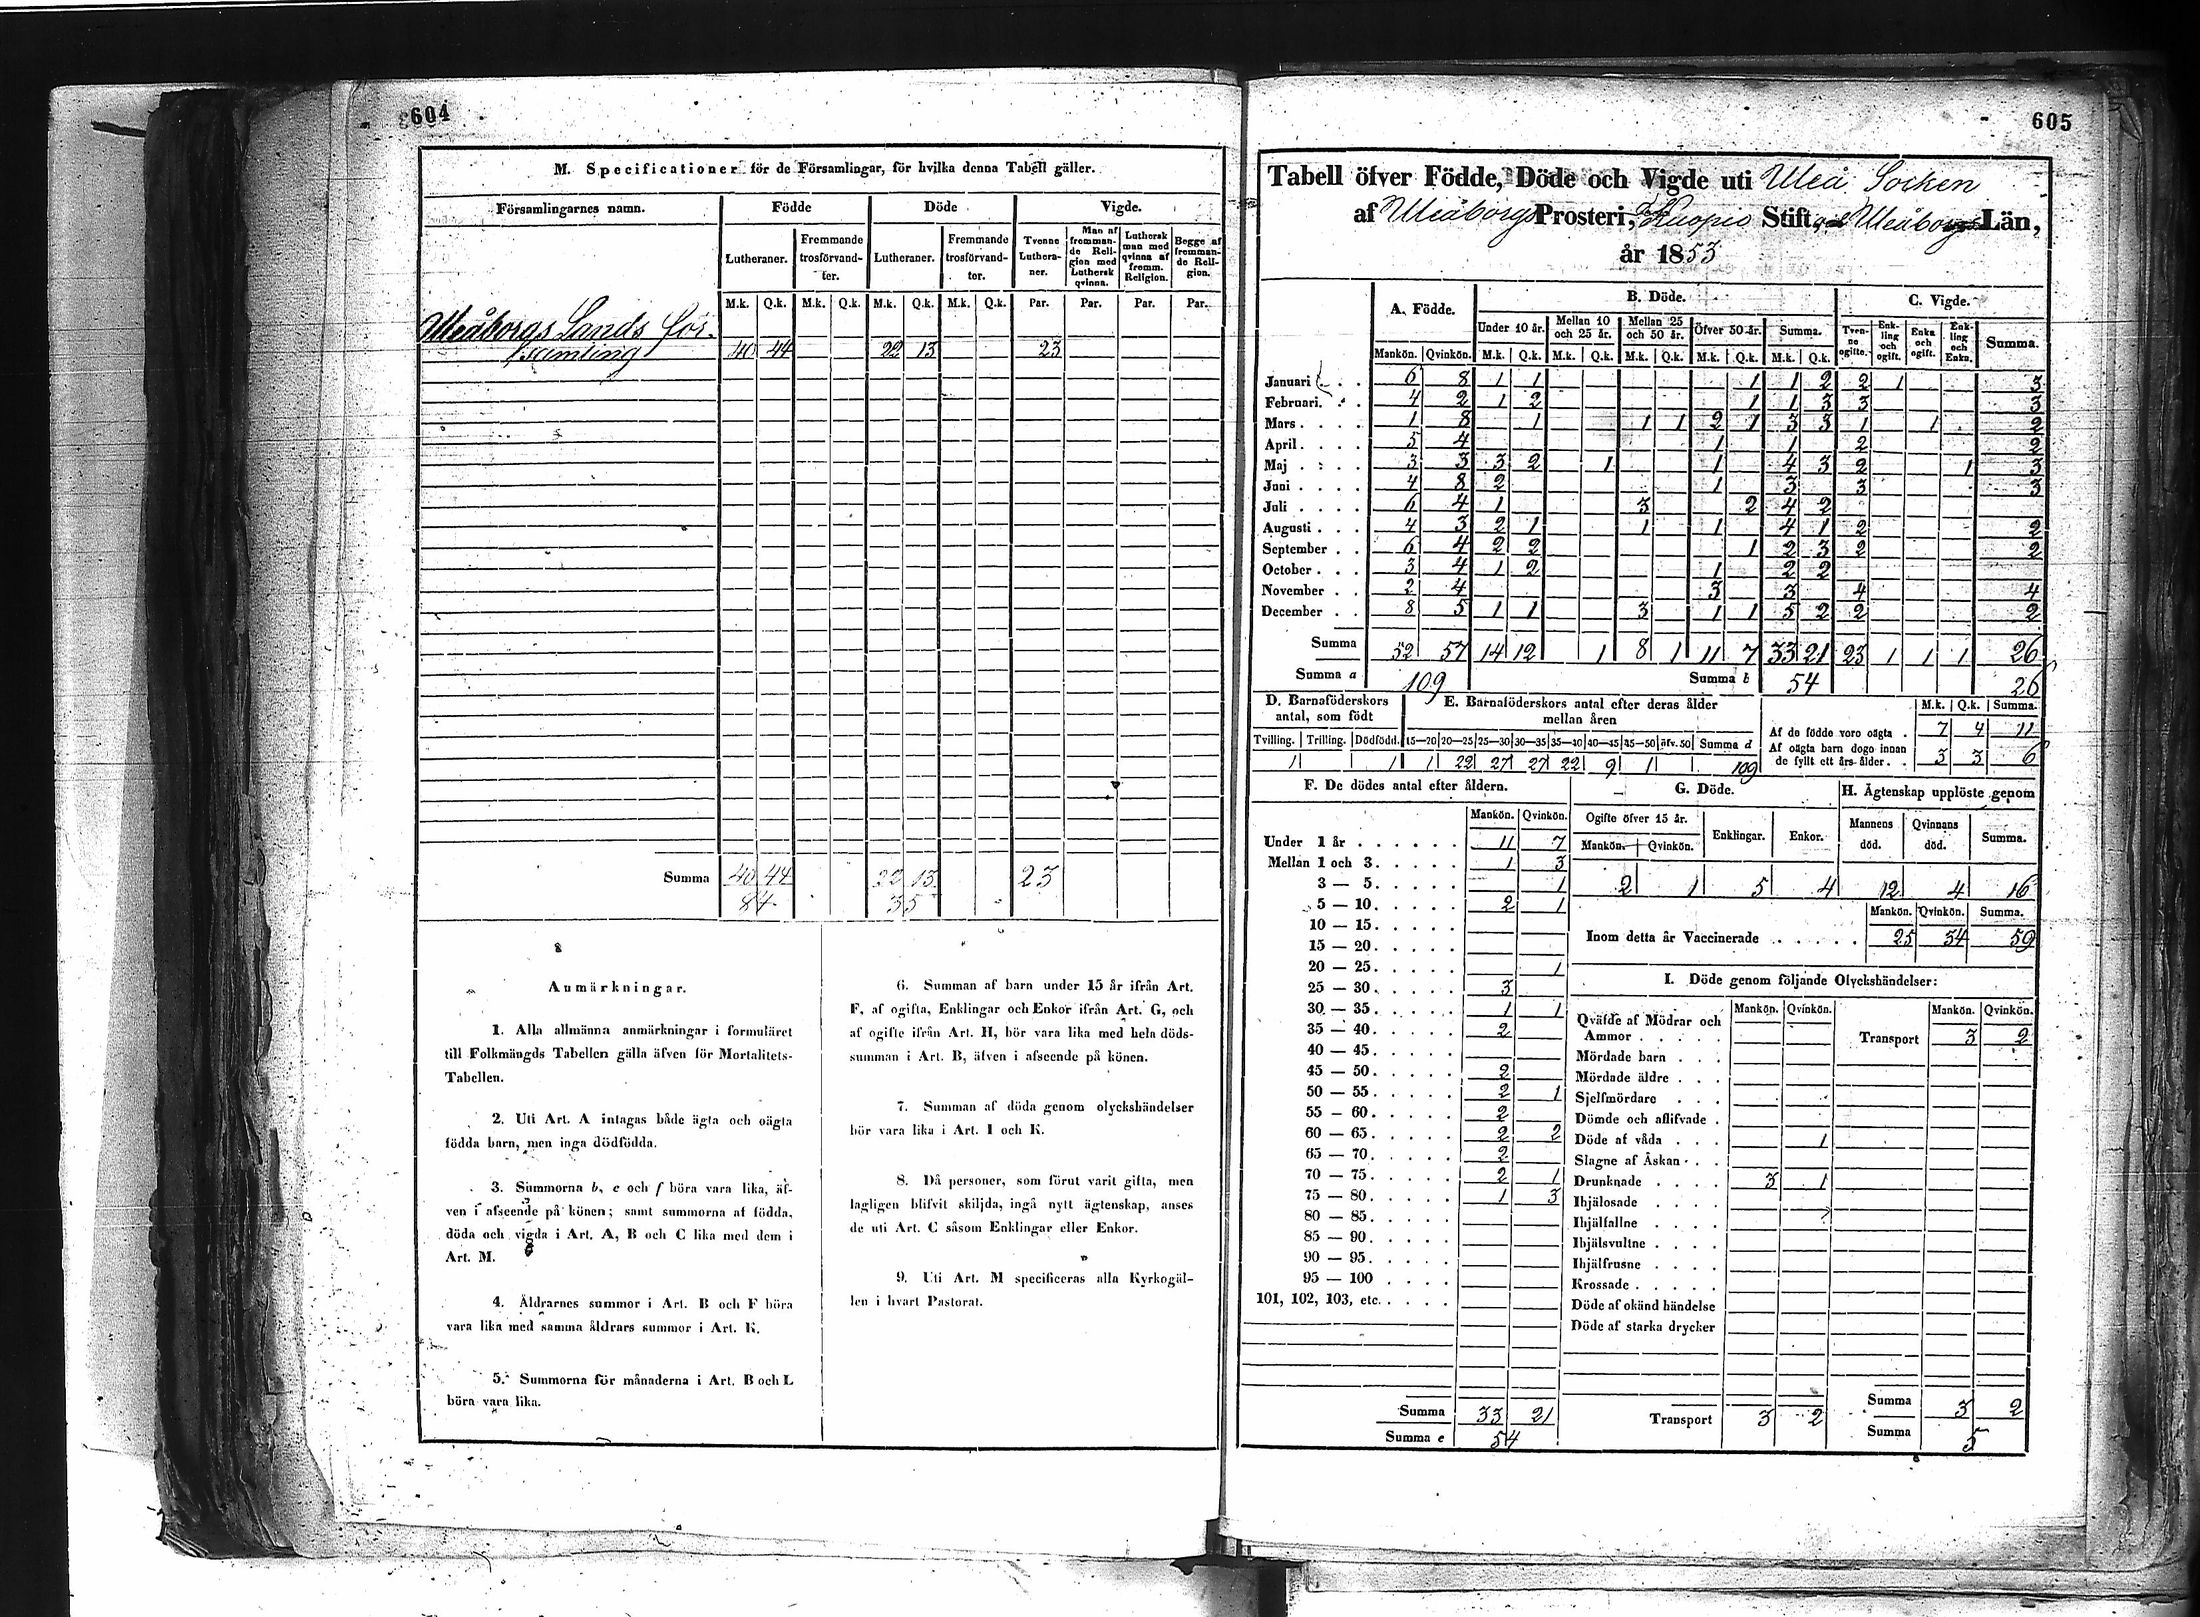 604
M. Specificationer för de Församlingar, för hvilka denna Tabell gäller.
Församlingarnes namn. Födde Döde Vigde.
Lutheraner. Fremmande trosförvandter. Lutheraner. Fremmande trosförvandter. Tvenne Lutheraner. Man af fremmande Religion med Luthersk qvinna. Luthersk man med qvinna af fremm. Religion. Begge af fremmande Religion.
M.k. Q.k. M.k. Q.k. M.k. Q.k. M.k. Q.k. Par. Par. Par. Par.
Uleåborgs Lands för-
samling 40 44 22 13 23
Summa 40 44 22 13 23
84 35
Anmärkningar.
1. Alla allmänna anmärkningar i formuläret
till Folkmängds Tabellen gälla äfven för Mortalitets-
Tabellen.
2. Uti Art. A intagas både ägta och oägta
födda barn, men inga dödfödda.
3. Summorna b, e och f böra vara lika, äf-
ven i afseende på könen; samt summorna af födda,
döda och vigda i Art. A, B och C lika med dem i
Art. M.
4. Åldrarnes summor i Art. B och F böra
vara lika med samma åldrars summor i Art. K.
5. Summorna för månaderna i Art. B och L
böra vara lika.
6. Summan af barn under 15 år ifrån Art.
F, af ogifta, Enklingar och Enkor ifrån Art. G, och
af ogifte ifrån Art. H, bör vara lika med hela döds-
summan i Art. B, äfven i afseende på könen.
7. Summan af döda genom olyckshändelser
bör vara lika i Art. I och K.
8. Då personer, som förut varit gifta, men
lagligen blifvit skiljda, ingå nytt ägtenskap, anses
de uti Art. C såsom Enklingar eller Enkor.
9. Uti Art. M specificeras alla Kyrkogäl-
len i hvart Pastorat.
605
Tabell öfver Födde, Döde och Vigde uti Uleå Socken
af Uleåborgs Prosteri, Kuopio Stift, och Uleåborgs Län,
år 1853
A. Födde. B. Döde. C. Vigde.
Under 10 år. Mellan 10 och 25 år. Mellan 25 och 50 år. Öfver 50 år. Summa. Tvenne ogifte. Enkling och ogift. Enka och ogift. Enkling och Enka. Summa.
Mankön. Qvinkön. M.k. Q.k. M.k. Q.k. M.k. Q.k. M.k. Q.k. M.k. Q.k.
Januari 6 8 1 1 1 1 2 2 1 3
Februari 4 2 1 2 1 1 3 3 3
Mars 1 8 1 1 1 2 1 3 3 1 1 2
April 5 4 1 1 2 2
Maj 3 3 3 2 1 1 4 3 2 1 3
Juni 4 8 2 1 3 3 3
Juli 6 4 1 3 2 4 2
Augusti 4 3 2 1 1 1 4 1 2 2
September 6 4 2 2 1 2 3 2 2
October 3 4 1 2 1 2 2
November 2 4 3 3 4 4
December 8 5 1 1 3 1 1 5 2 2 2
Summa 52 57 14 12 1 8 1 11 7 33 21 23 1 1 1 26
Summa a 109 Summa b 54 26
D. Barnaföderskors antal, som födt
Tvilling. Trilling. Dödfödd.
1 1
E. Barnaföderskors antal efter deras ålder mellan åren
15—20 20—25 25—30 30—35 35—40 40—45 45—50 öfv. 50 Summa d
1 22 27 27 22 9 1 109
M.k. Q.k. Summa.
Af de födde voro oägta . 7 4 11
Af oägta barn dogo innan
de fyllt ett års ålder. . 3 3 6
F. De dödes antal efter åldern.
Mankön. Qvinkön.
Under 1 år 11 7
Mellan 1 och 3. 1 3
3 — 5. 1
5 — 10. 2 1
10 — 15.
15 — 20.
20 — 25. 1
25 — 30. 3
30 — 35. 1 1
35 — 40. 2
40 — 45.
45 — 50. 2
50 — 55. 2 1
55 — 60. 2
60 — 65. 2 2
65 — 70. 2
70 — 75. 2 1
75 — 80. 1 3
80 — 85.
85 — 90.
90 — 95.
95 — 100
101, 102, 103, etc.
Summa 33 21
Summa e 54
G. Döde.
Ogifte öfver 15 år. Enklingar. Enkor.
Mankön. Qvinkön.
2 1 5 4
H. Ägtenskap upplöste genom
Mannens död. Qvinnans död. Summa.
12 4 16
Mankön. Qvinkön. Summa.
Inom detta år Vaccinerade 25 34 59
I. Döde genom följande Olyckshändelser:
Mankön. Qvinkön. Mankön. Qvinkön.
Qväfde af Mödrar och
Ammor Transport 3 2
Mördade barn
Mördade äldre
Sjelfmördare
Dömde och aflifvade
Döde af våda 1
Slagne af Åskan
Drunknade 3 1
Ihjälosade
Ihjälfallne
Ihjälsvultne
Ihjälfrusne
Krossade
Döde af okänd händelse
Döde af starka drycker
Transport 3 2
Summa 3 2
Summa 5